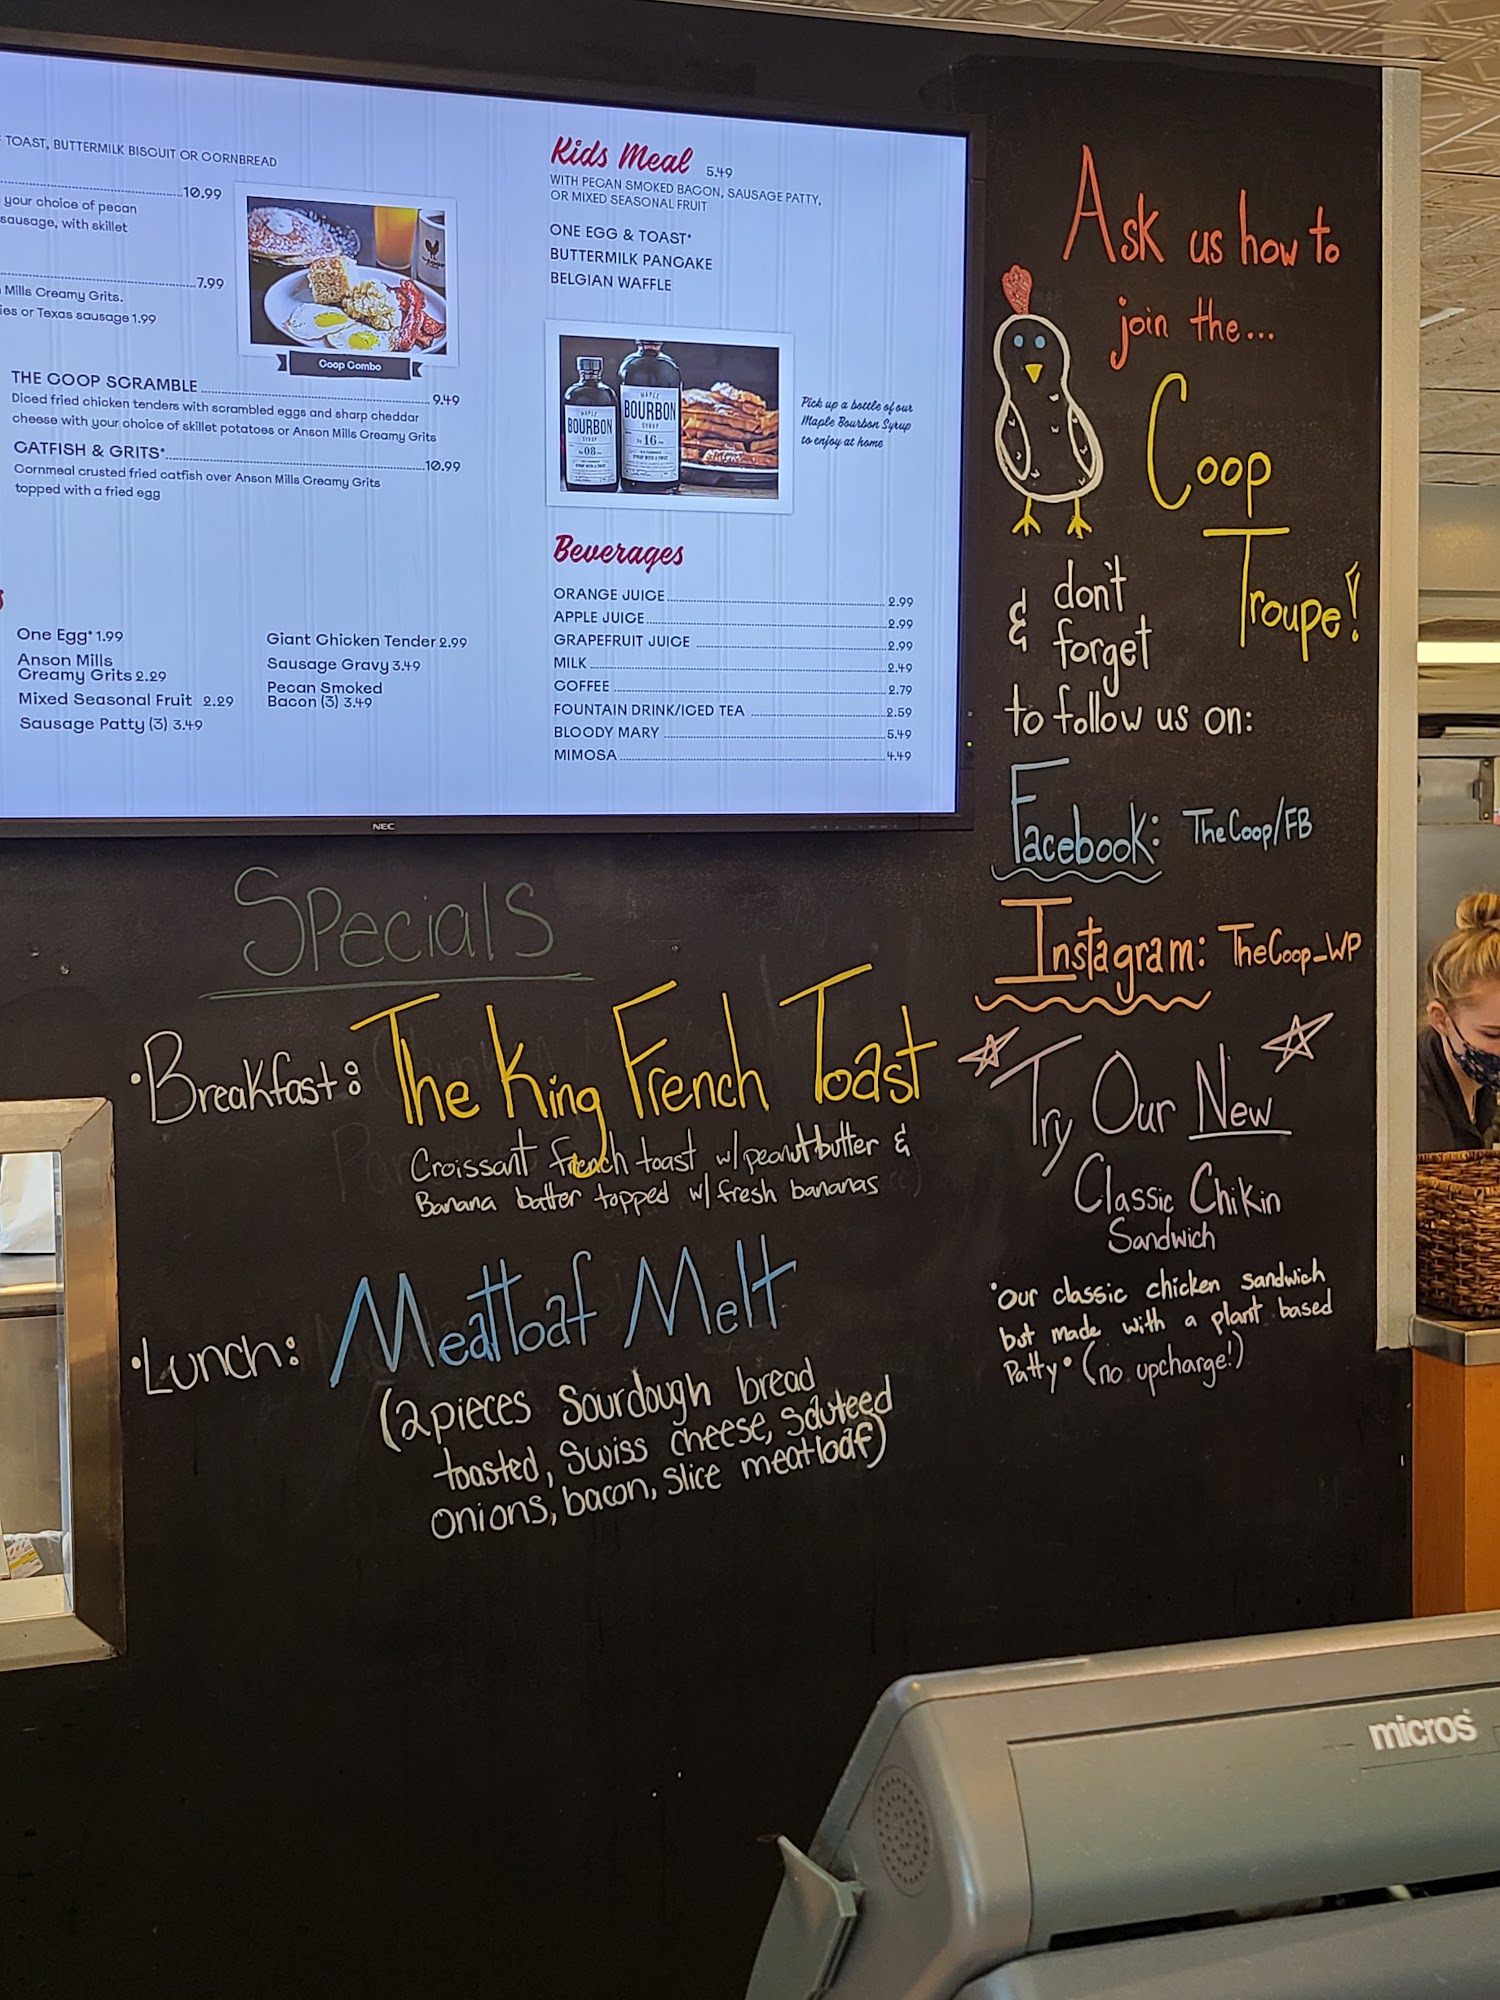 TOAST, BUTTERMILK BISCUIT OR CORNBREAD
10.99
your choice of pecan
sausage, with skillet
7.99
Mills Creamy Grits.
ies or Texas sausage 1.99
Coop Combo
THE COOP SCRAMBLE 9.49
Diced fried chicken tenders with scrambled eggs and sharp cheddar
cheese with your choice of skillet potatoes or Anson Mills Creamy Grits
CATFISH & GRITS* 10.99
Cornmeal crusted fried catfish over Anson Mills Creamy Grits
topped with a fried egg
One Egg* 1.99
Anson Mills
Creamy Grits 2.29
Mixed Seasonal Fruit 2.29
Sausage Patty (3) 3.49
Giant Chicken Tender 2.99
Sausage Gravy 3.49
Pecan Smoked
Bacon (3) 3.49
Kids Meal 5.49
WITH PECAN SMOKED BACON, SAUSAGE PATTY,
OR MIXED SEASONAL FRUIT
ONE EGG & TOAST*
BUTTERMILK PANCAKE
BELGIAN WAFFLE
MAPLE
BOURBON
SYRUP
08
MAPLE
BOURBON
SYRUP
16
Pick up a bottle of our
Maple Bourbon Syrup
to enjoy at home
Beverages
ORANGE JUICE 2.99
APPLE JUICE 2.99
GRAPEFRUIT JUICE 2.99
MILK 2.49
COFFEE 2.79
FOUNTAIN DRINK/ICED TEA 2.59
BLOODY MARY 5.49
MIMOSA 4.49
NEC
Ask us how to
join the...
Coop
Troupe!
& don't
forget
to follow us on:
Facebook: TheCoop/FB
Instagram: TheCoop_WP
Try Our New
Classic Chikin
Sandwich
*our classic chicken sandwich
but made with a plant based
Patty* (no upcharge!)
Specials
•Breakfast: The King French Toast
Croissant french toast w/ peanutbutter &
Banana batter topped w/ fresh bananas
•Lunch: Meatloaf Melt
(2 pieces Sourdough bread
toasted, Swiss cheese, Sauteed
onions, bacon, slice meatloaf)
micros